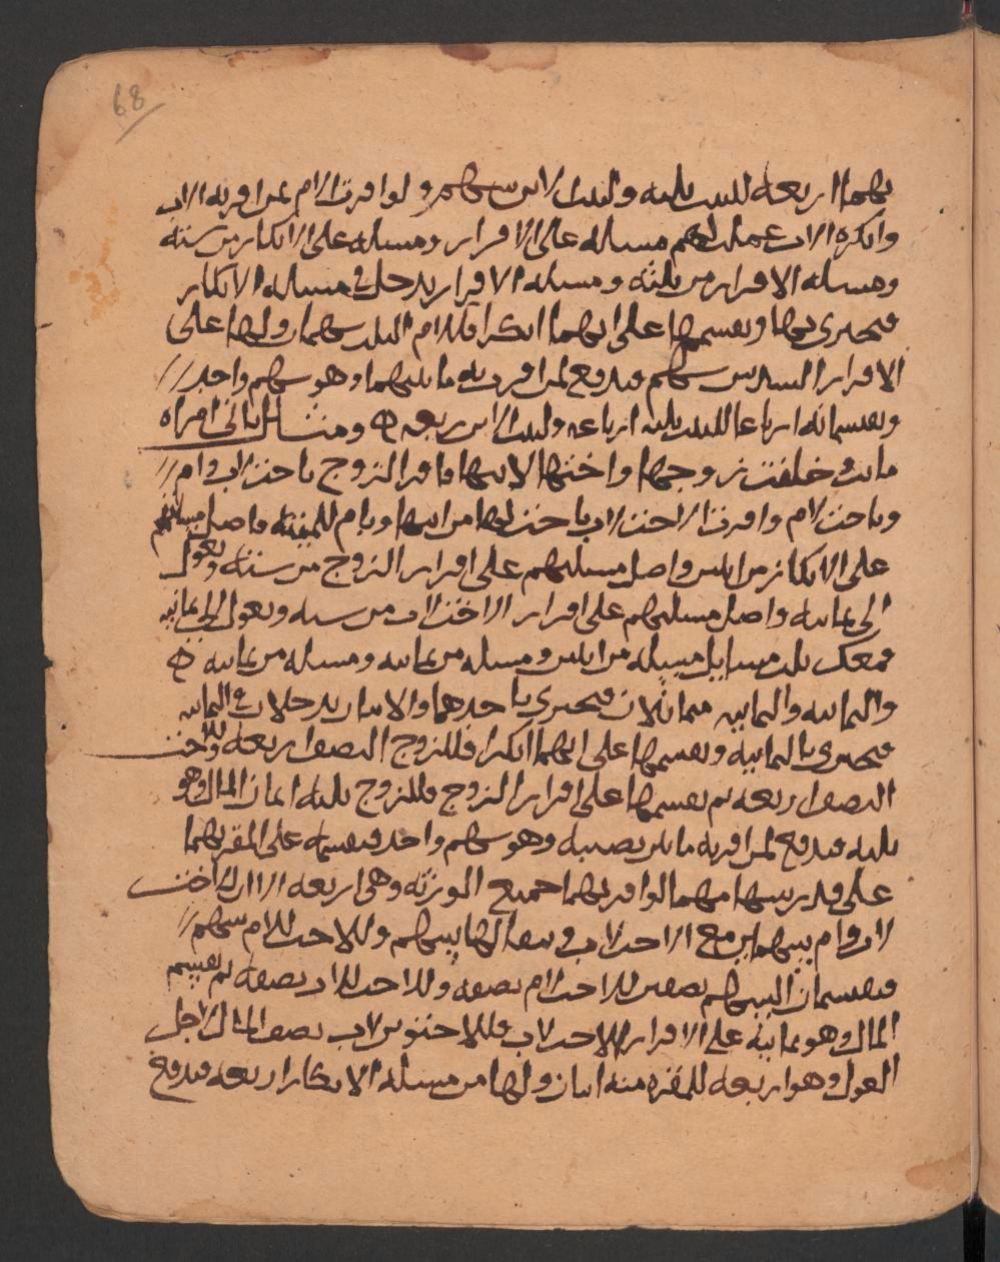 68
بهما اربعه للبنت ثلثه ولبنت الابن سهم ولو اقرت الام بمن اقر به الاب
وانكره الاب عملت لهم مسئله على الاقرار ومسئله على الانكار من سته
ومسئله الاقرار من ثلثه ومسئله الاقرار تدخل في مسئله الانكار
فتجتزي بها وتقسمها على انهما انكرا فللام الثلث سهمان ولها على
الاقرار السدس سهم فتدفع لمن اقرت به ما بينهما وهو سهم واحد
ويقتسمانه ارباعا للبنت ثلثه ارباعه ولبنت الابن ربعه ومثال الثاني امراه
ماتت وخلفت زوجها واختها لابيها فاقر الزوج باخت لاب وام
وباخت لام واقرت الاخت لاب باخت لها من ابيها وبام للميته فاصل مسئلتهم
على الانكار من اثنين واصل مسئلتهم على اقرار الزوج من سته وتعول
الى ثمانيه واصل مسئلتهم على اقرار الاخت لاب من سته وتعول الى ثمانيه
فمعك ثلث مسايل مسئله من اثنين ومسئله من ثمانيه ومسئله من ثمانيه
والثمانيه والثمانيه متماثلان فتجتزي باحدهما والاثنان يدخلان في الثمانيه
فتجتزي بالثمانيه وتقسمها على انهما انكرا فللزوج النصف اربعه وللاخت
النصف اربعه ثم تقسمها على اقرار الزوج فللزوج ثلثه اثمان المال وهو
ثلثه فتدفع لمن اقر به ما بين نصيبه وهو سهم واحد فتقسمه على المقر بهما
على قدر سهامهما لو اقر بهما جميع الورثه وهي اربعه لان الاخت
لاب وام بينهما من مع الاخت لاب وبقا لها سهم وللاخت للام سهم
فيقتسمان السهم نصفين للاخت لام نصفه وللاخت للاب نصفه ثم تقسم
المال وهو ثمانيه على اقرار الاخت لاب فللاختين لاب نصف المال لاجل
العول وهو اربعه للمقره منه اثنان ولها من مسئله الانكار اربعه فتدفع